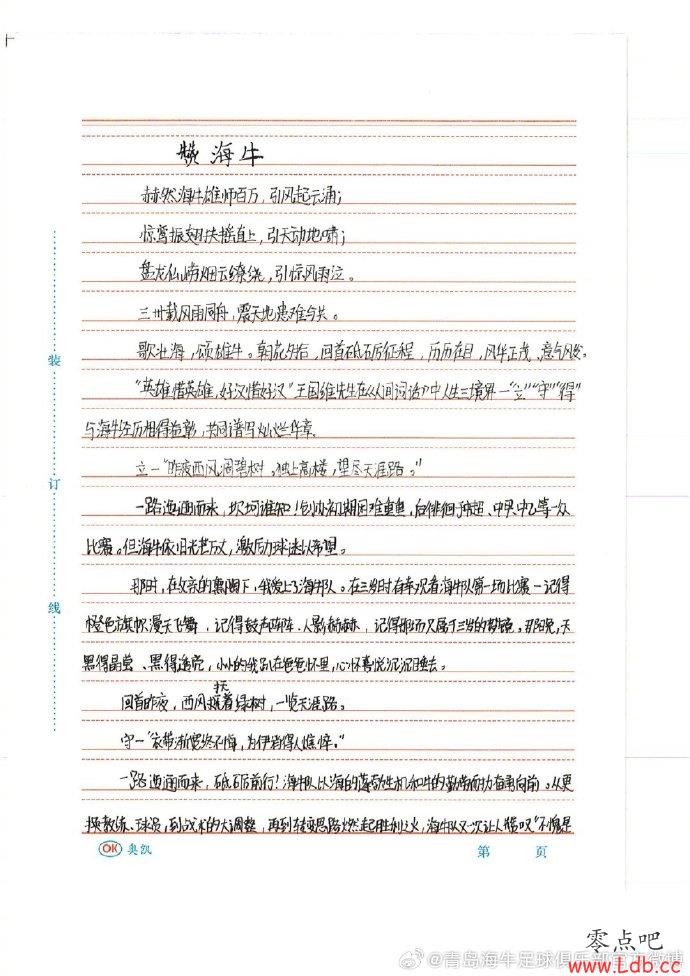 赞海牛
赫然海牛雄师百万，引风起云涌；
惊鸾振翅扶摇直上，引天动地啸；
盘龙仙啸烟云缭绕，引惊风雨泣。
三卅载风雨同舟，震天地患难与共。
歌壮海，颂雄牛。朝花夕拾，回首砥砺征程，历历在目，风华正茂、意气风发。
“英雄惜英雄，好汉惜好汉”王国维先生在《人间词话》中人生三境界—“立”“守”“得”
与海牛经历相得益彰，共同谱写灿烂华章。
立—“昨夜西风凋碧树。独上高楼，望尽天涯路。”
一路迤逦而来，坎坷谁知！创办初期困难重重，后徘徊于中超、中甲、中乙等一众
比赛。但海牛依旧光芒万丈，激励球迷以希望。
那时，在父亲的熏陶下，我爱上了海牛队。在三岁时有幸观看海牛队第一场比赛—记得
橙色旗帜漫天飞舞，记得鼓声阵阵、人影赫赫，记得那场又属于三岁的朦胧。那晚，天
黑得晶莹、黑得透亮，小小的我趴在爸爸怀里，心怀喜悦沉沉睡去。
回首昨夜，西风抚着绿树，一览天涯路。
守—“衣带渐宽终不悔，为伊消得人憔悴。”
一路迤逦而来，砥砺前行！海牛队以海的蓬勃生机和牛的勤劳耐力奋勇向前。从更
换教练、球员，到战术的大调整，再到转变思路燃起胜利之火，海牛队又一次让人惊叹“不愧是
装
订
线
OK 奥凯
第 页
零点吧
@青岛海牛足球俱乐部官方微博
www.Ldb.cc